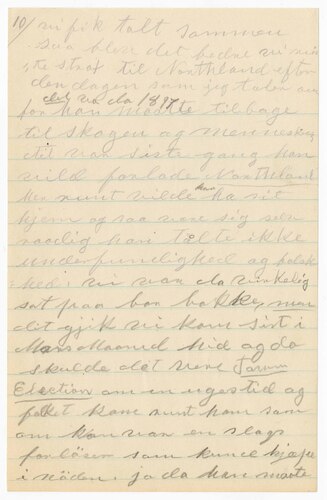 10/ vi fik talt sammen
saa blev det bedre vi
te strax til Northland efter
den dagen som jeg taler om
det va da 1897
for han maatte tilbage
til skogen og mennesker
det var siste gang han
vild forlade Northland
han
Her rundt vilde ha sit
hjem og saa være sig selv
raadig han tålte ikke
underfundighed og falsk
hed; vi var da virkelig
sat paa bar bakke, men
det gjik vi kom sist i
Mars Maaned hid og da
skulde det være Town
Election om en ugestid og
folket kom rundt ham som
om han var en slags
forløser som kunde hjælpe
i nöden. ja da han maate